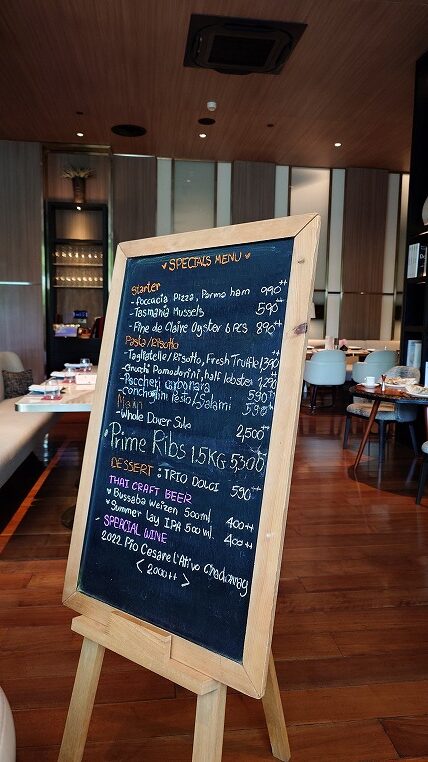 SPECIALS MENU
Starter
- Foccacia Pizza, Parma ham 990++
- Tasmania Mussels 590++
- Fine de Claire Oyster 6 PCS 890++
Pasta/Risotto
- Tagliatelle/Risotto, Fresh Truffle 1390++
- Gnocchi Pomodorini, half lobster 1,290++
- Paccheri carbonara 590++
- Conchiglioni Pesto/Salami 590++
Main
- Whole Dover Sole 2,500++
Prime Ribs 1.5KG 5,300++
DESSERT : TRIO DOLCI 590++
THAI CRAFT BEER
Bussaba Weizen 500ml 400++
Summer Lay IPA 500ml. 400++
SPERCIAL WINE
2022 Pio Cesare L'Altvo Chadonnay
< 2000++ >